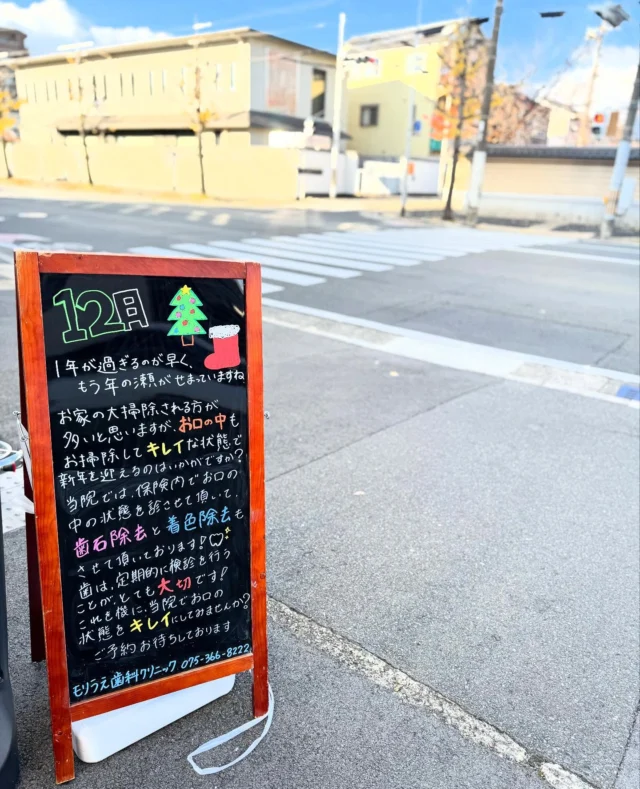 12月
1年が過ぎるのが早く、
もう年の瀬がせまっていますね
お家の大掃除される方が
多いと思いますが、お口の中も
お掃除してキレイな状態で
新年を迎えるのはいかがですか?
当院では、保険内でお口の
中の状態を診させて頂いて、
歯石除去と着色除去も
させて頂いております!
歯は、定期的に検診を行う
ことが、とても大切です!
これを機に、当院でお口の
状態をキレイにしてみませんか?
ご予約お待ちしております
モリうえ歯科クリニック 075-366-8222